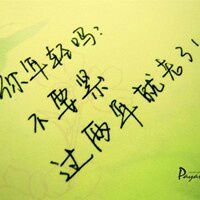 你年轻吗？
不要紧
过两年就老了！